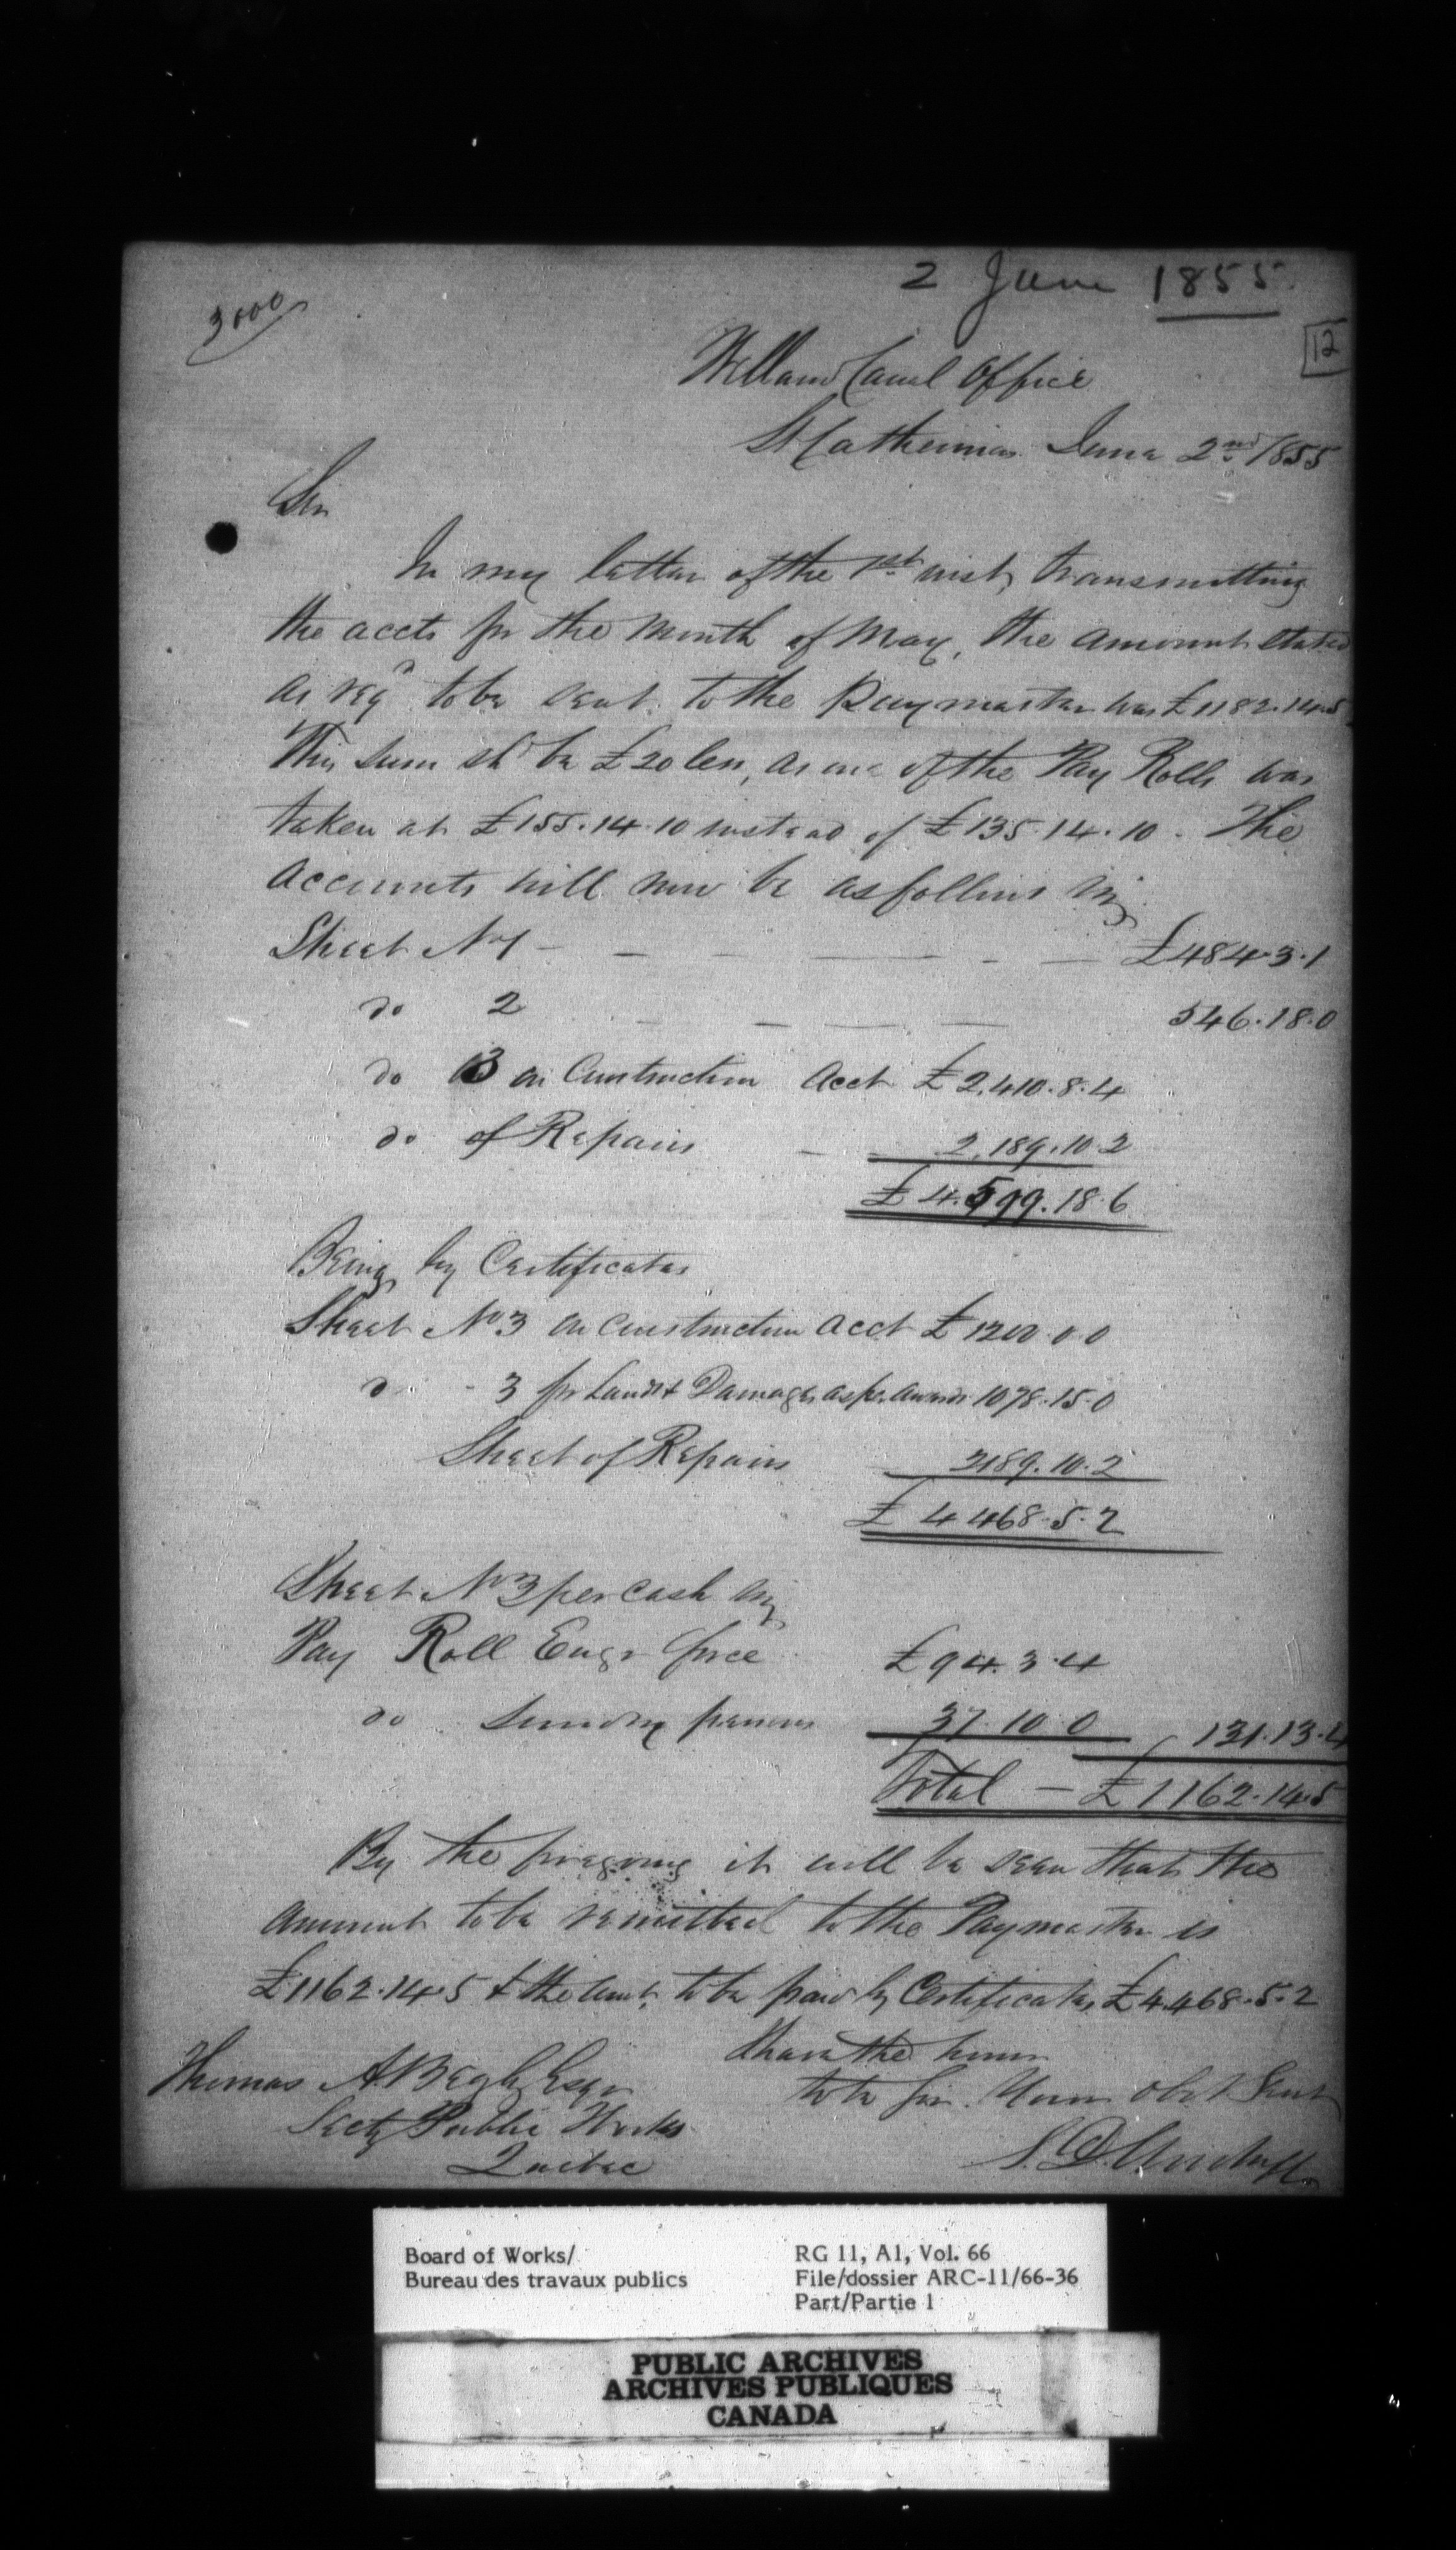 2 June 1855
3000
12
Welland Canal Office
St Catherines June 2nd 1855
Sir
In my letter of the 1st inst, transmitting
the accts for the Month of May, the amount stated
as reqd to be sent to the Paymaster was £1182.14.5
This sum shd be £20 less, as one of the Pay Rolls was
taken at £155.14.10 instead of £135.14.10 - The
Accounts will now be as follows viz
Sheet No 1 - £484.3.1
do 2 546.18.0
do 3 on Construction Acct £2,410.8.4
do of Repairs 2,189.10.2
£4.599.18.6
Being by Certificates
Sheet No 3 on Construction Acct £1200.0.0
do - 3 for Land & Damages as per awards 1078.15.0
Sheet of Repairs 2189.10.2
£4468.5.2
Sheet No 3 per Cash viz
Pay Roll Engr force £94.3.4
do Sundry persons 37.10.0 131.13.4
Total - £1162.14.5
By the foregoing it will be seen that the
amount to be remitted to the Paymaster is
£1162.14.5 & the amt. to be paid by Certificates £4.468.5.2
I have the honor
to be Sir. Your obt Servt
Thomas A Begly Esqr
Secty Public Works
Quebec
S. D. Woodruff
Board of Works/
Bureau des travaux publics
RG 11, A1, Vol. 66
File/dossier ARC-11/66-36
Part/Partie 1
PUBLIC ARCHIVES
ARCHIVES PUBLIQUES
CANADA